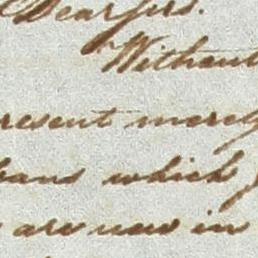 Dear Sirs.
Without
resent merely
bans which
are now in